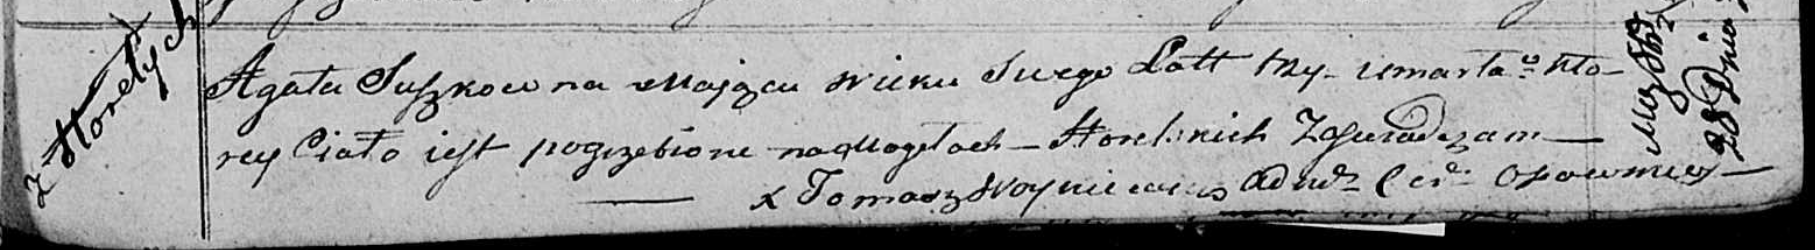 z Horelych
Agata Suszkowna mająca wieku swego Latt trzy umarła Kto-
rey Ciało iest pogrzebione na Mogiłach Horelskich Zaswiadczam
x Tomasz Woyniewicz Adm Cer
28 Dnia